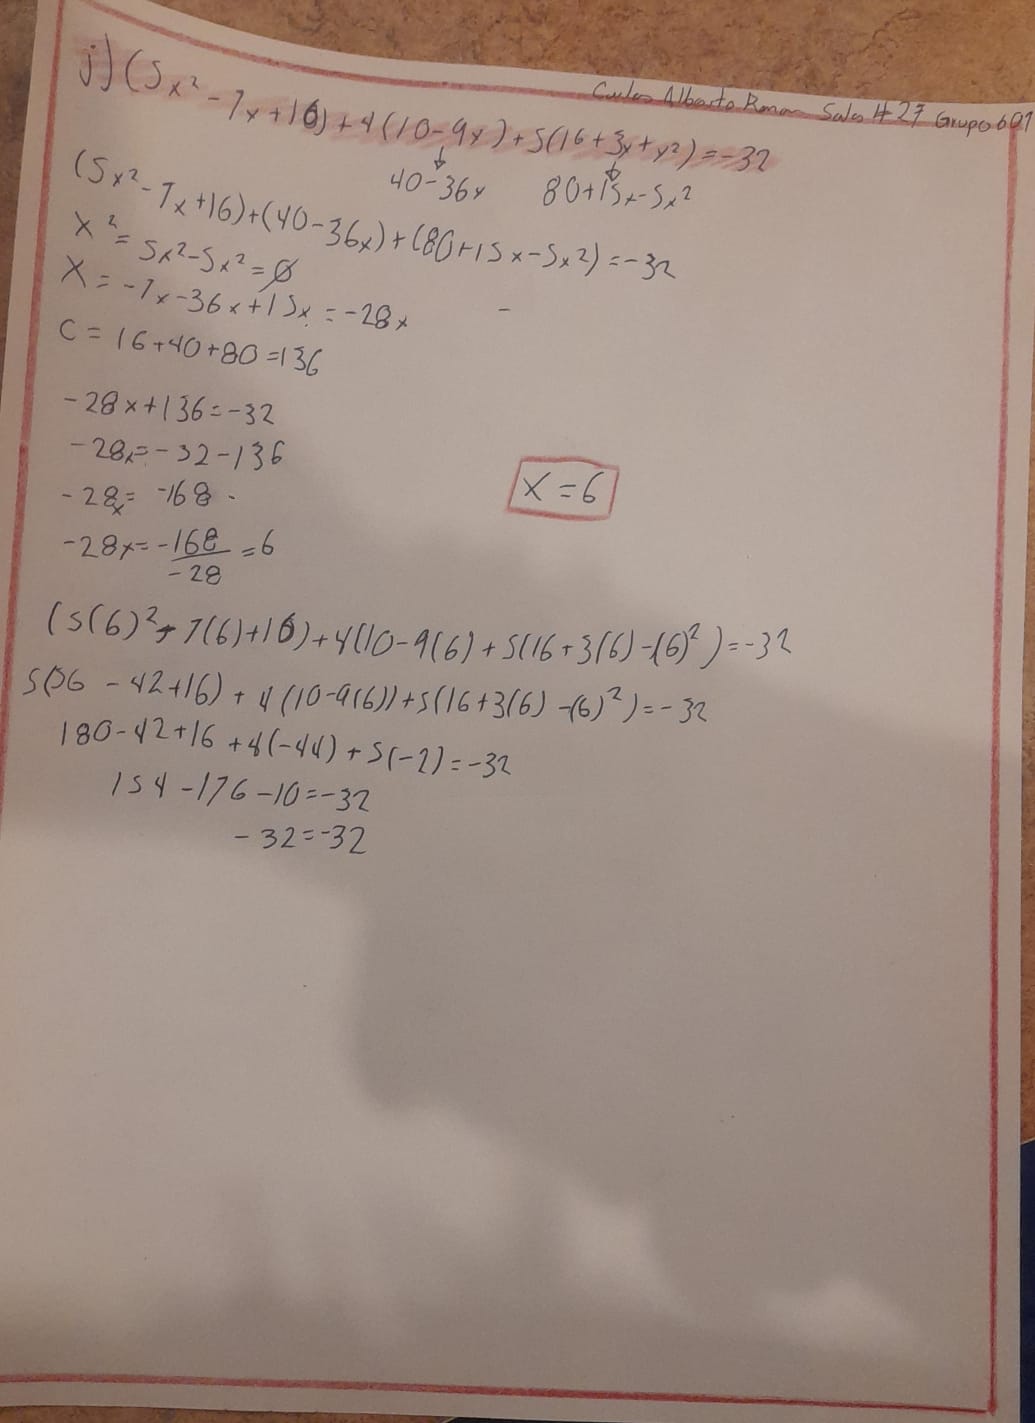 Carlos Alberto Roman Salas #27 Grupo 601
j) (5x² - 7x + 16) + 4(10 - 9x) + 5(16 + 3x + x²) = -32
40-36x 80+15x-5x²
(5x² - 7x + 16) + (40 - 36x) + (80 + 15x - 5x²) = -32
x² = 5x² - 5x² = 0
x = -7x - 36x + 15x = -28x
C = 16 + 40 + 80 = 136
-28x + 136 = -32
-28x = -32 - 136
-28x = -168
x = 6
-28x = -168/-28 = 6
(5(6)² - 7(6) + 16) + 4(10 - 9(6) + 5(16 + 3(6) - (6)²) = -32
5(36 - 42 + 16) + 4(10 - 9(6)) + 5(16 + 3(6) - (6)²) = -32
180 - 42 + 16 + 4(-44) + 5(-2) = -32
154 - 176 - 10 = -32
-32 = -32